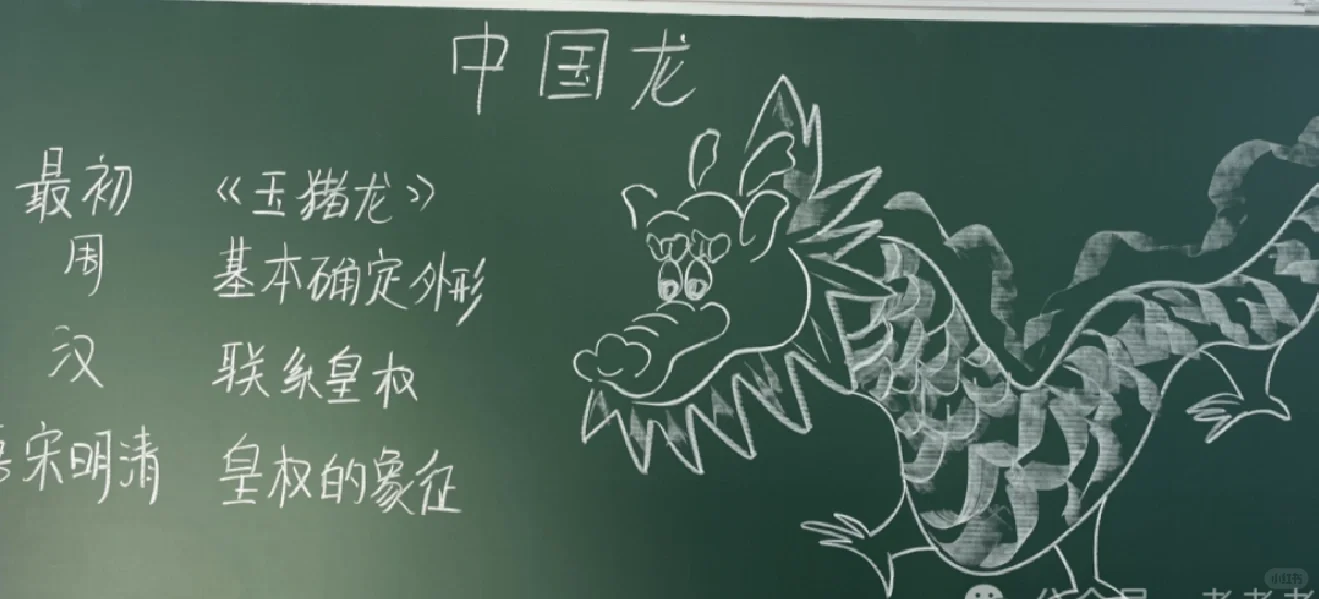 中国龙
最初 《玉猪龙》
周 基本确定外形
汉 联系皇权
宋明清 皇权的象征
小红书